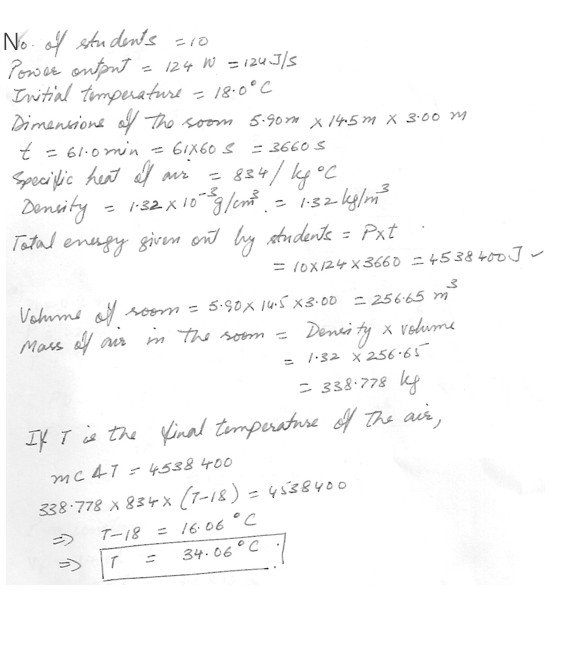 No. of students = 10
Power output = 124 W = 124 J/s
Initial temperature = 18.0°C
Dimensions of the room 5.90m × 14.5m × 3.00 m
t = 61.0 min = 61×60 s = 3660 s
Specific heat of air = 834/kg °C
Density = 1.32 × 10⁻³ g/cm³. = 1.32 kg/m³
Total energy given out by students = P×t
= 10×124×3660 = 4538400 J ✓
Volume of room = 5.90 × 14.5 × 3.00 = 256.65 m³
Mass of air in the room = Density × volume
= 1.32 × 256.65
= 338.778 kg
If T is the final temperature of the air,
m C ΔT = 4538400
338.778 × 834 × (T-18) = 4538400
⇒ T-18 = 16.06 °C
⇒ T = 34.06 °C